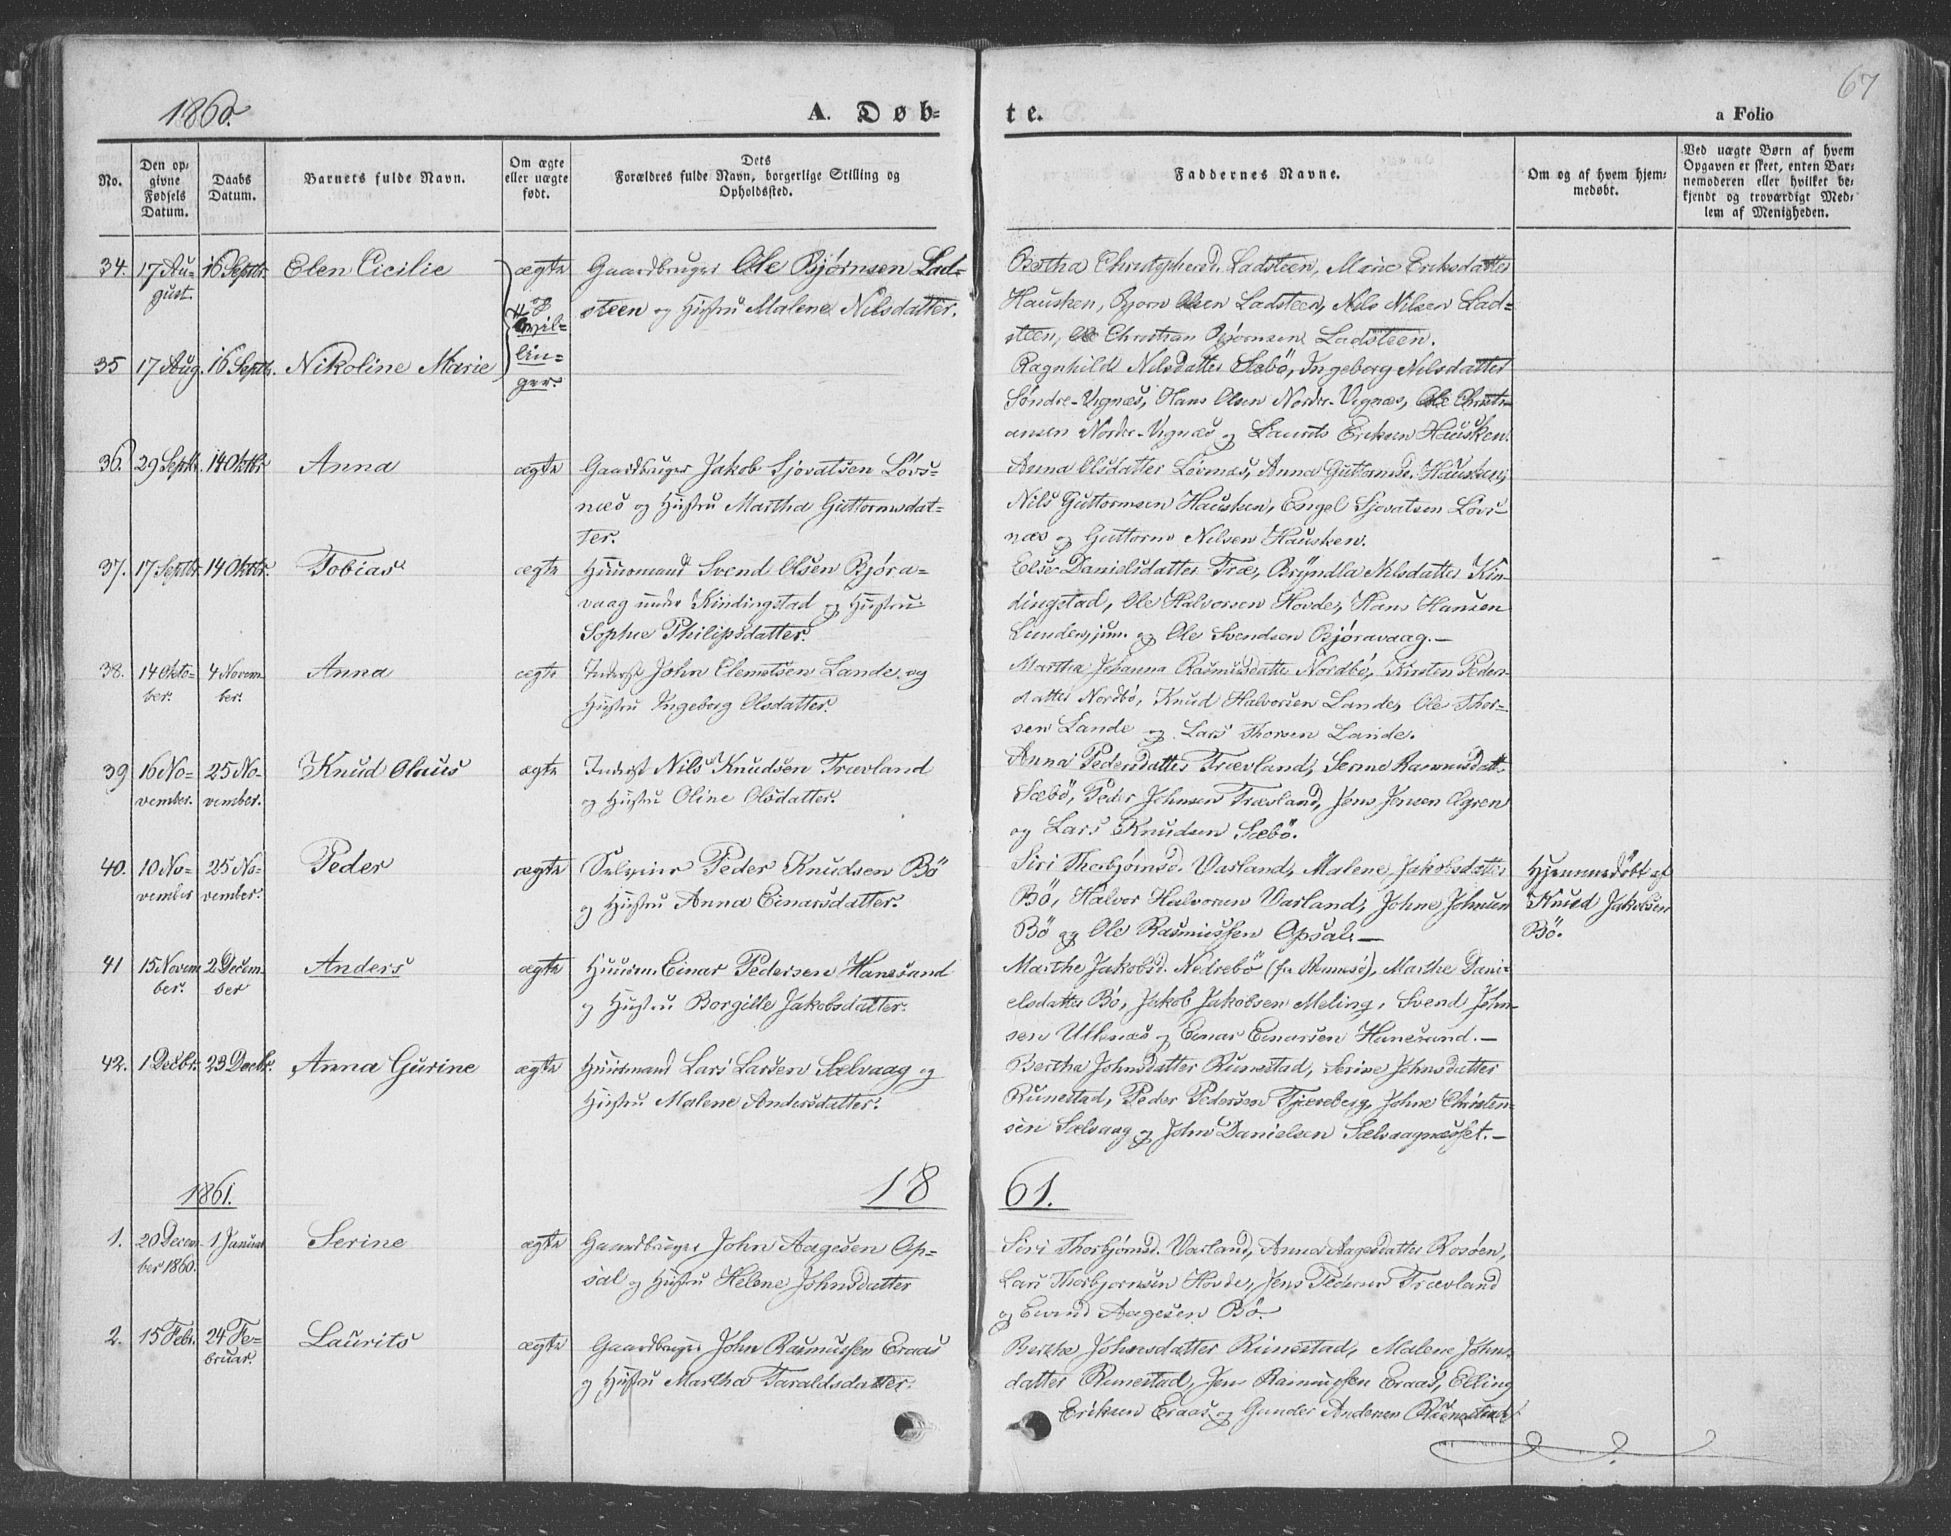 67
1860.
A. Døb-
te.
a Folio
No.
Den op-
givne
Fødsels
Datum.
Daabs
Datum.
Barnets fulde Navn.
Om ægte
eller uægte
født.
Dets
Forældres fulde Navn, borgerlige Stilling og
Opholdssted.
Faddernes Navne.
Om og af hvem hjem-
medøbt.
Ved uægte Børn af hvem
Opgaven er skeet, enten Bar-
nemoderen eller hvilket be-
kjendt og troværdigt Med-
lem af Menigheden.
34. 17 Au-
gust.
16 Septbr.
Elen Cicilie
ægte
Gaardbruger Ole Bjørnsen Lad-
steen og Hustru Malene Nilsdatter.
Bertha Christophersd. Ladsteen, Marie Eriksdatter
Hausken, Bjørn Olsen Ladsteen, Nils Nilsen Lad-
steen, Ole Christian Bjørnsen Ladsteen.
Tvil-
lin-
ger.
35 17 Aug. 16 Septbr. Nikoline Marie
Ragnhilde Nilsdatter Sæbö, Ingeborg Nilsdatter
Söndre-Vignæs, Hans Olsen Nordre-Vignæs, Ole Christi-
ansen Nordre-Vignæs og Laurits Eriksen Hausken.
36. 29 Septbr. 14 Oktbr. Anna
ægte
Gaardbruger Jakob Sjovatsen Løvs-
næs og Hustru Martha Guttormsdat-
ter.
Anna Olsdatter Løvsnæs, Anna Guttormsd. Hausken,
Nils Guttormsen Hausken, Engel Sjovatsen Løvs-
næs og Guttorm Nilsen Hausken.
37. 17 Septbr. 14 Oktbr. Tobias
ægte
Huusmand Svend Olsen Bjøra-
vaag under Kindingstad og Hustru
Sophie Philipsdatter.
Else Danielsdatter Træ, Bryndla Nilsdatter Kin-
dingstad, Ole Halvorsen Hovde, Hans Hansen
Lunde, jun. og Ole Svendsen Bjøravaag.—
38. 14 Okto-
ber.
4 Novem-
ber.
Anna
ægte
Inderst John Clemetsen Lande og
Hustru Ingeborg Olsdatter.
Martha Johanna Rasmusdatter Nordbö, Kirsten Peders-
datter Nordbö, Knud Halvorsen Lande, Ole Thor-
sen Lande og Lars Thorsen Lande.
39 16 No-
vember.
25 No-
vember.
Knud Olaus
ægte
Inderst Nils Knudsen Trævland
og Hustru Oline Olsdatter.
Anna Pedersdatter Trævland, Serine Rasmusdatt.
Sæbö, Peder Johnsen Trævland, Jens Jensen
og Lars Knudsen Sæbö.
40. 10 No-
vember
25 No-
vember.
Peder
ægte
Selveier Peder Knudsen Bö
og Hustru Anna Einarsdatter.
Siri Thorbjørnsd. Varland, Malene Jakobsdatter
Bö, Halvor Halvorsen Varland, Johne Johnsen
Bö og Ole Rasmussen Opsal.—
Hjemmedöbt af
Knud Jakobsen
Bö.
41 15 Novem-
ber.
2 Decem-
ber
Anders
ægte
Huusm. Einar Pedersen Hanesand
og Hustru Borgille Jakobsdatter.
Marthe Jakobsd. Nedrebö (fra Rennesö), Marthe Dani-
elsdatter Bö, Jakob Jakobsen Meling, Svend John-
sen Utsnæs og Einar Einarsen Hanesand.—
42. 1 Decbr. 23 Decbr. Anna Gurine
ægte
Huusmand Lars Larsen Sælvaag og
Hustru Malene Andersdatter.
Bertha Johnsdatter Runestad, Serine Johnsdatter
Runestad, Peder Pedersen Tjæreberg, Johne Christen-
sen Sælvaag og John Danielsen Sælvaagnæsset.—
1861.
18
61.
1. 20 Decem-
ber 1860.
1 Januar
Serine
ægte
Gaardbruger John Aagesen Op-
sal og Hustru Helene Johnsdatter
Siri Thorbjørnsd. Varland, Anna Aagesdatter Rosøen,
Lars Thorbjørnsen Hovde, Jens Pedersen Trævland
og Eivind Aagesen Bö.
2. 15 Febr. 24 Fe-
bruar.
Laurits
ægte
Gaardbruger John Rasmussen Eraas
og Hustru Martha Taraldsdatter.
Berthe Johnsdatter Runestad, Malene Johns-
datter Runestad, Jens Rasmussen Eraas, Elling
Eriksen Eraas og Gunder Andersen Runestad.